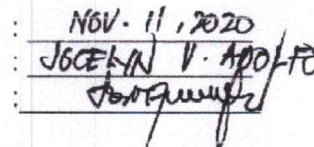 : NOV. 11, 2020
: JOCELYN V. ADOLFO
: